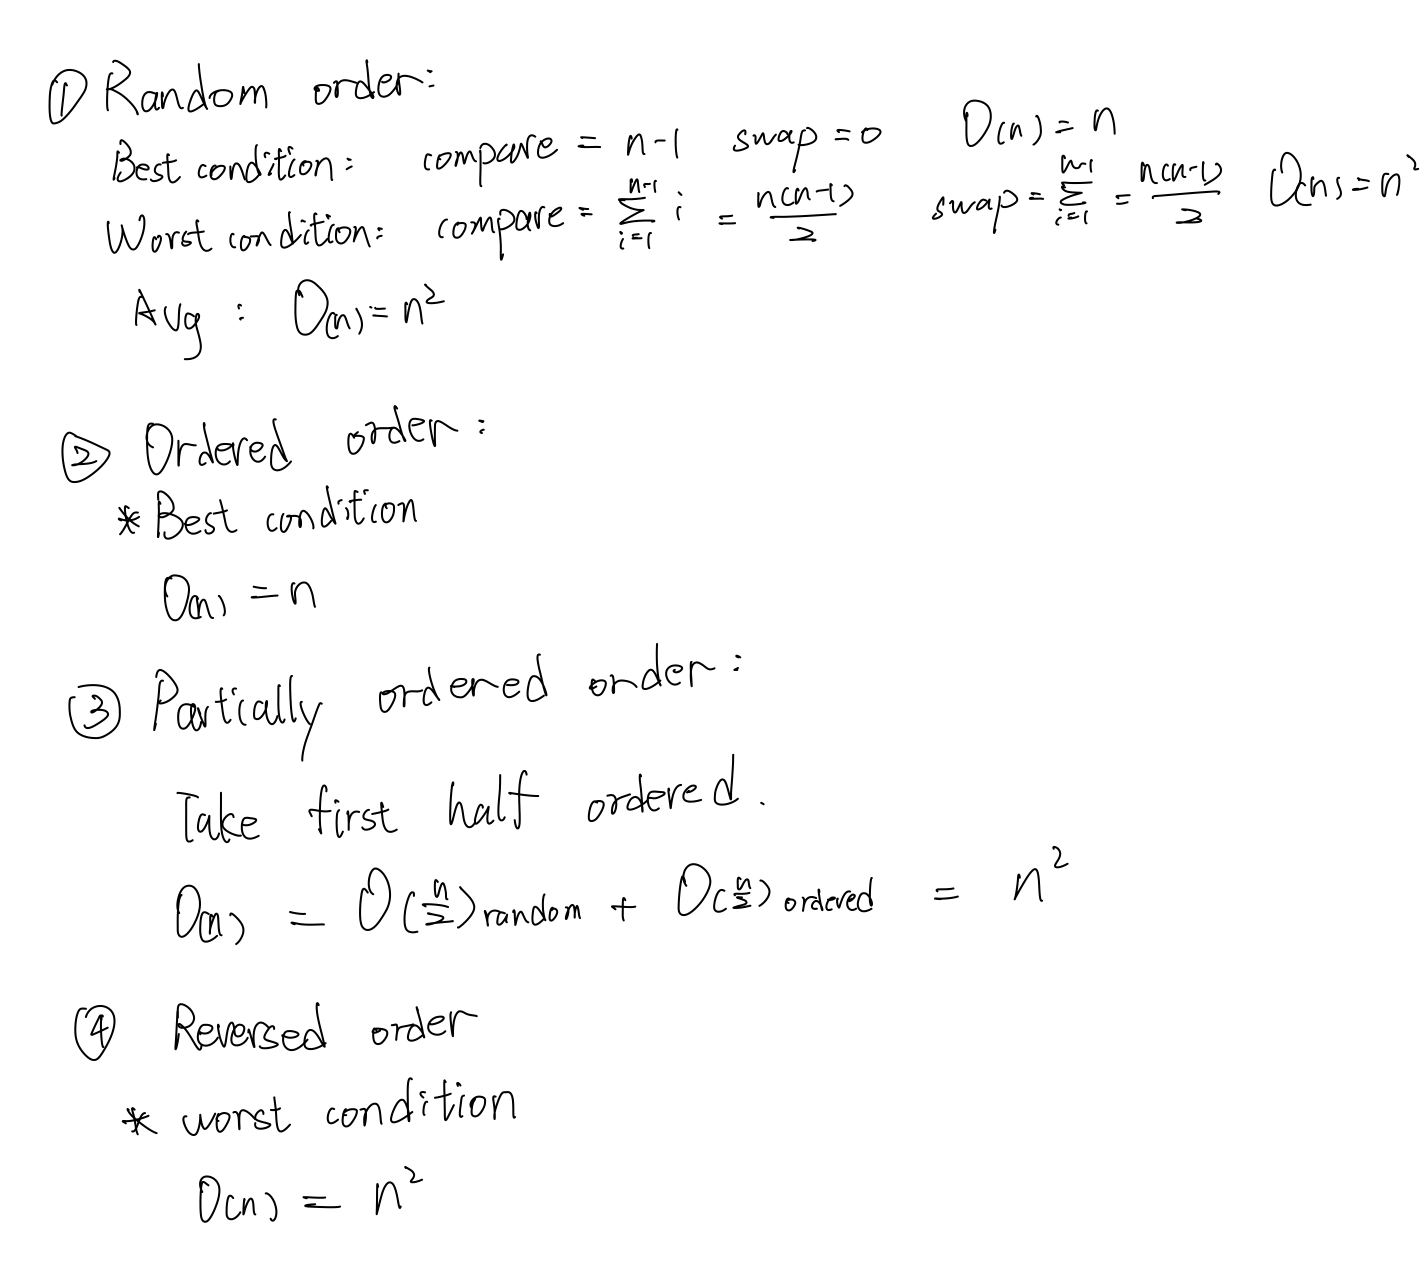 ① Random order:
Best condition: compare = n-1 swap = 0 O(n) = n
Worst condition: compare = \sum_{i=1}^{n-1} i = \frac{n(n-1)}{2} swap = \sum_{i=1}^{n-1} = \frac{n(n-1)}{2} O(n) = n²
Avg : O(n) = n²
② Ordered order:
* Best condition
O(n) = n
③ Partially ordered order:
Take first half ordered.
O(n) = O(\frac{n}{2}) random + O(\frac{n}{2}) ordered = n²
④ Reversed order
* worst condition
O(n) = n²